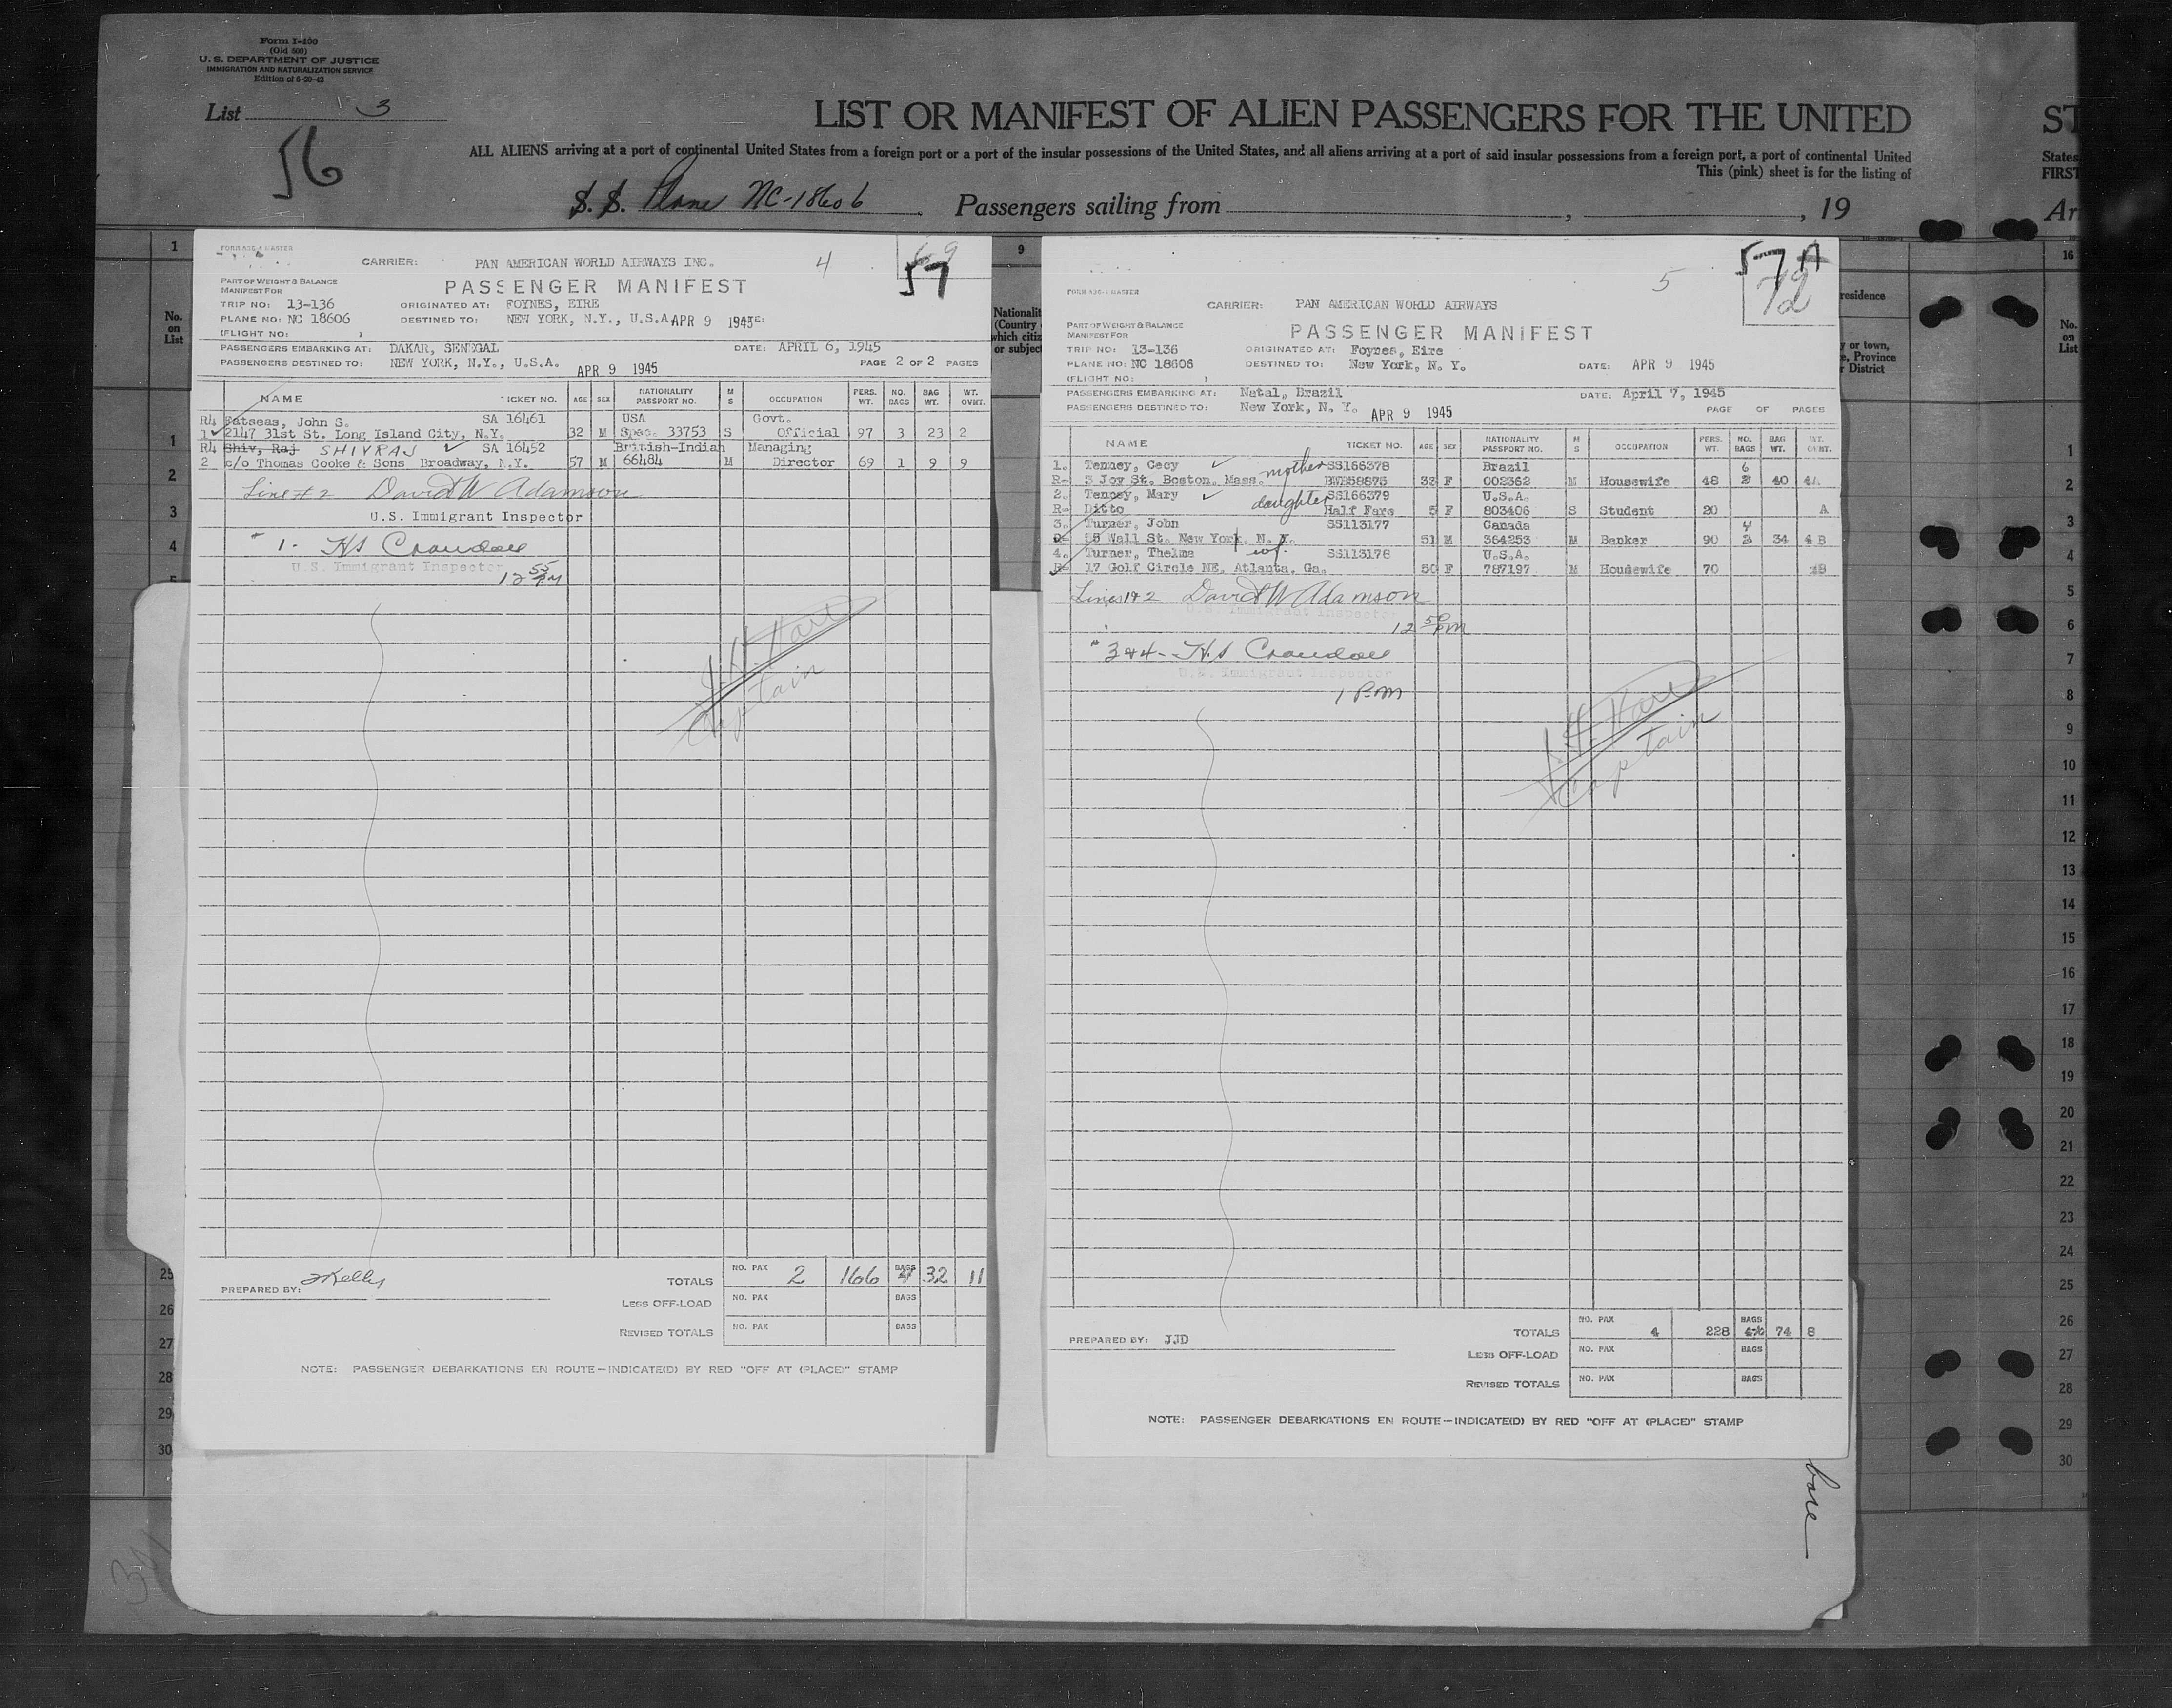 Form I-400
(Old 500)
U. S. DEPARTMENT OF JUSTICE
IMMIGRATION AND NATURALIZATION SERVICE
Edition of 6-20-42
List 3
56
LIST OR MANIFEST OF ALIEN PASSENGERS FOR THE UNITED
ST
ALL ALIENS arriving at a port of continental United States from a foreign port or a port of the insular possessions of the United States, and all aliens arriving at a port of said insular possessions from a foreign port, a port of continental United
States
This (pink) sheet is for the listing of
FIRST
S. S. Plane NC-18606 Passengers sailing from , , 19
Ar
4
57
CARRIER: PAN AMERICAN WORLD AIRWAYS INC.
PASSENGER MANIFEST
PART OF WEIGHT & BALANCE
MANIFEST FOR
TRIP NO: 13-136 ORIGINATED AT: FOYNES, EIRE
PLANE NO: NC 18606 DESTINED TO: NEW YORK, N.Y., U.S.A. APR 9 1945
(FLIGHT NO: )
PASSENGERS EMBARKING AT: DAKAR, SENEGAL DATE: APRIL 6, 1945
PASSENGERS DESTINED TO: NEW YORK, N.Y., U.S.A. APR 9 1945 PAGE 2 OF 2 PAGES
NAME TICKET NO. AGE SEX NATIONALITY PASSPORT NO. M S OCCUPATION PERS. WT. NO. BAGS BAG WT. WT. OVWT.
R4 Fatseas, John S. SA 16461 USA Govt.
1 2147 31st St. Long Island City, N.Y. 32 M Spec. 33753 S Official 97 3 23 2
R4 Shiv, Raj SHIVRAJ SA 16452 British-Indian Managing
2 c/o Thomas Cooke & Sons Broadway, N.Y. 57 M 66484 M Director 69 1 9 9
Line # 2 David W Adamson
U.S. Immigrant Inspector
" 1 - HS Crandall
U.S. Immigrant Inspector
12 55 PM
J. H. Hart
Captain
PREPARED BY: Kelly
TOTALS NO. PAX 2 166 BAGS 4 32 11
LESS OFF-LOAD NO. PAX BAGS
REVISED TOTALS NO. PAX BAGS
NOTE: PASSENGER DEBARKATIONS EN ROUTE—INDICATE(D) BY RED "OFF AT (PLACE)" STAMP
5
57 A
72
CARRIER: PAN AMERICAN WORLD AIRWAYS
PASSENGER MANIFEST
PART OF WEIGHT & BALANCE
MANIFEST FOR
TRIP NO: 13-136 ORIGINATED AT: Foynes, Eire
PLANE NO: NC 18606 DESTINED TO: New York, N. Y. DATE: APR 9 1945
(FLIGHT NO: )
PASSENGERS EMBARKING AT: Natal, Brazil DATE: April 7, 1945
PASSENGERS DESTINED TO: New York, N. Y. APR 9 1945 PAGE OF PAGES
NAME TICKET NO. AGE SEX NATIONALITY PASSPORT NO. M S OCCUPATION PERS. WT. NO. BAGS BAG WT. WT. OVWT.
1. Tenney, Cecy mother SS166378 Brazil 6
R- 3 Joy St. Boston, Mass. 58875 33 F 002362 M Housewife 48 2 40 4A
2. Tenney, Mary daughter SS166379 U.S.A.
R- Ditto Half Fare 5 F 803406 S Student 20 A
3. Turner, John SS113177 Canada 4
55 Wall St. New York, N. Y. 51 M 364253 M Banker 90 2 34 4B
4. Turner, Thelma wf. SS113178 U.S.A.
R- 17 Golf Circle NE, Atlanta, Ga. 50 F 787197 M Housewife 70 B
Lines 1&2 David W Adamson
U.S. Immigrant Inspector
12 50 PM
" 3 & 4 - H.S Crandall
U.S. Immigrant Inspector
1 P.M
J. H. Hart
Captain
PREPARED BY: JJD
TOTALS NO. PAX 4 228 BAGS 74 8
LESS OFF-LOAD NO. PAX BAGS
REVISED TOTALS NO. PAX BAGS
NOTE: PASSENGER DEBARKATIONS EN ROUTE—INDICATE(D) BY RED "OFF AT (PLACE)" STAMP
1
No.
on
List
1
2
3
4
5
25
26
27
28
29
30
9
Nationality
(Country
which citiz
or subject
residence
y or town,
e, Province
r District
16
No.
on
List
1
2
3
4
5
6
7
8
9
10
11
12
13
14
15
16
17
18
19
20
21
22
23
24
25
26
27
28
29
30